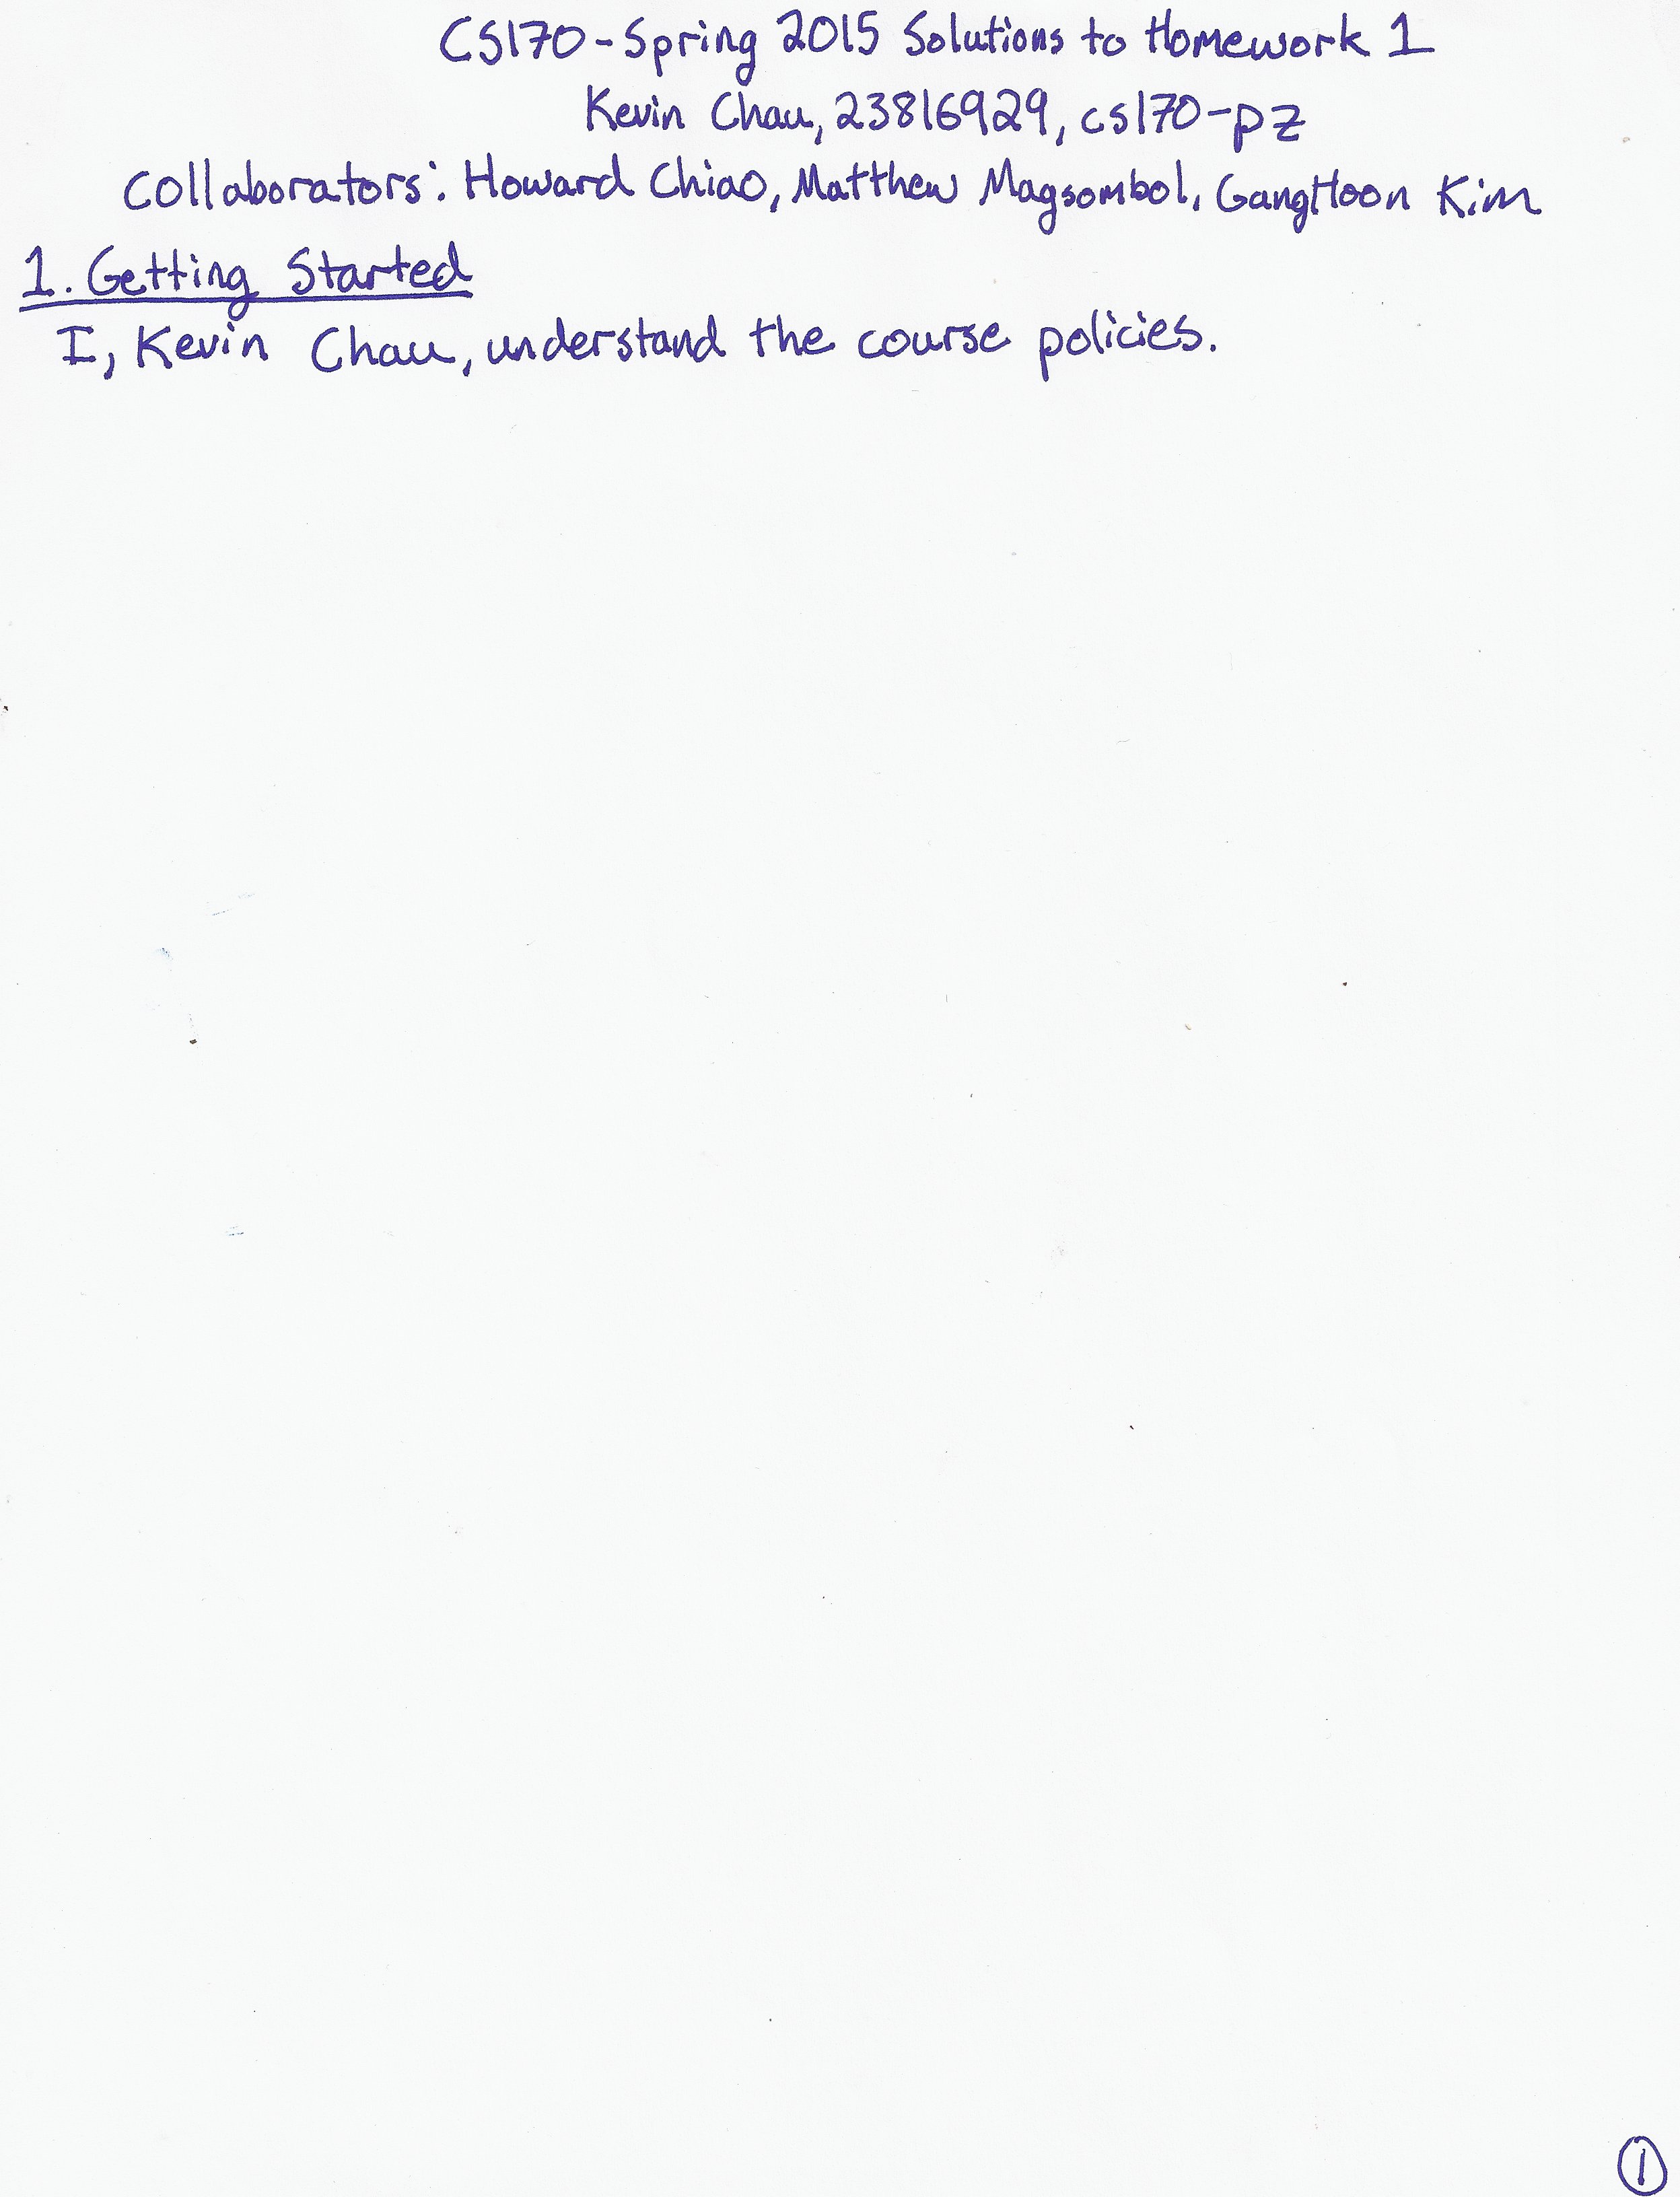 CS170-Spring 2015 Solutions to Homework 1
Kevin Chau, 23816929, cs170-pz
Collaborators: Howard Chiao, Matthew Magsombol, GangHoon Kim
1. Getting Started
I, Kevin Chau, understand the course policies.
1